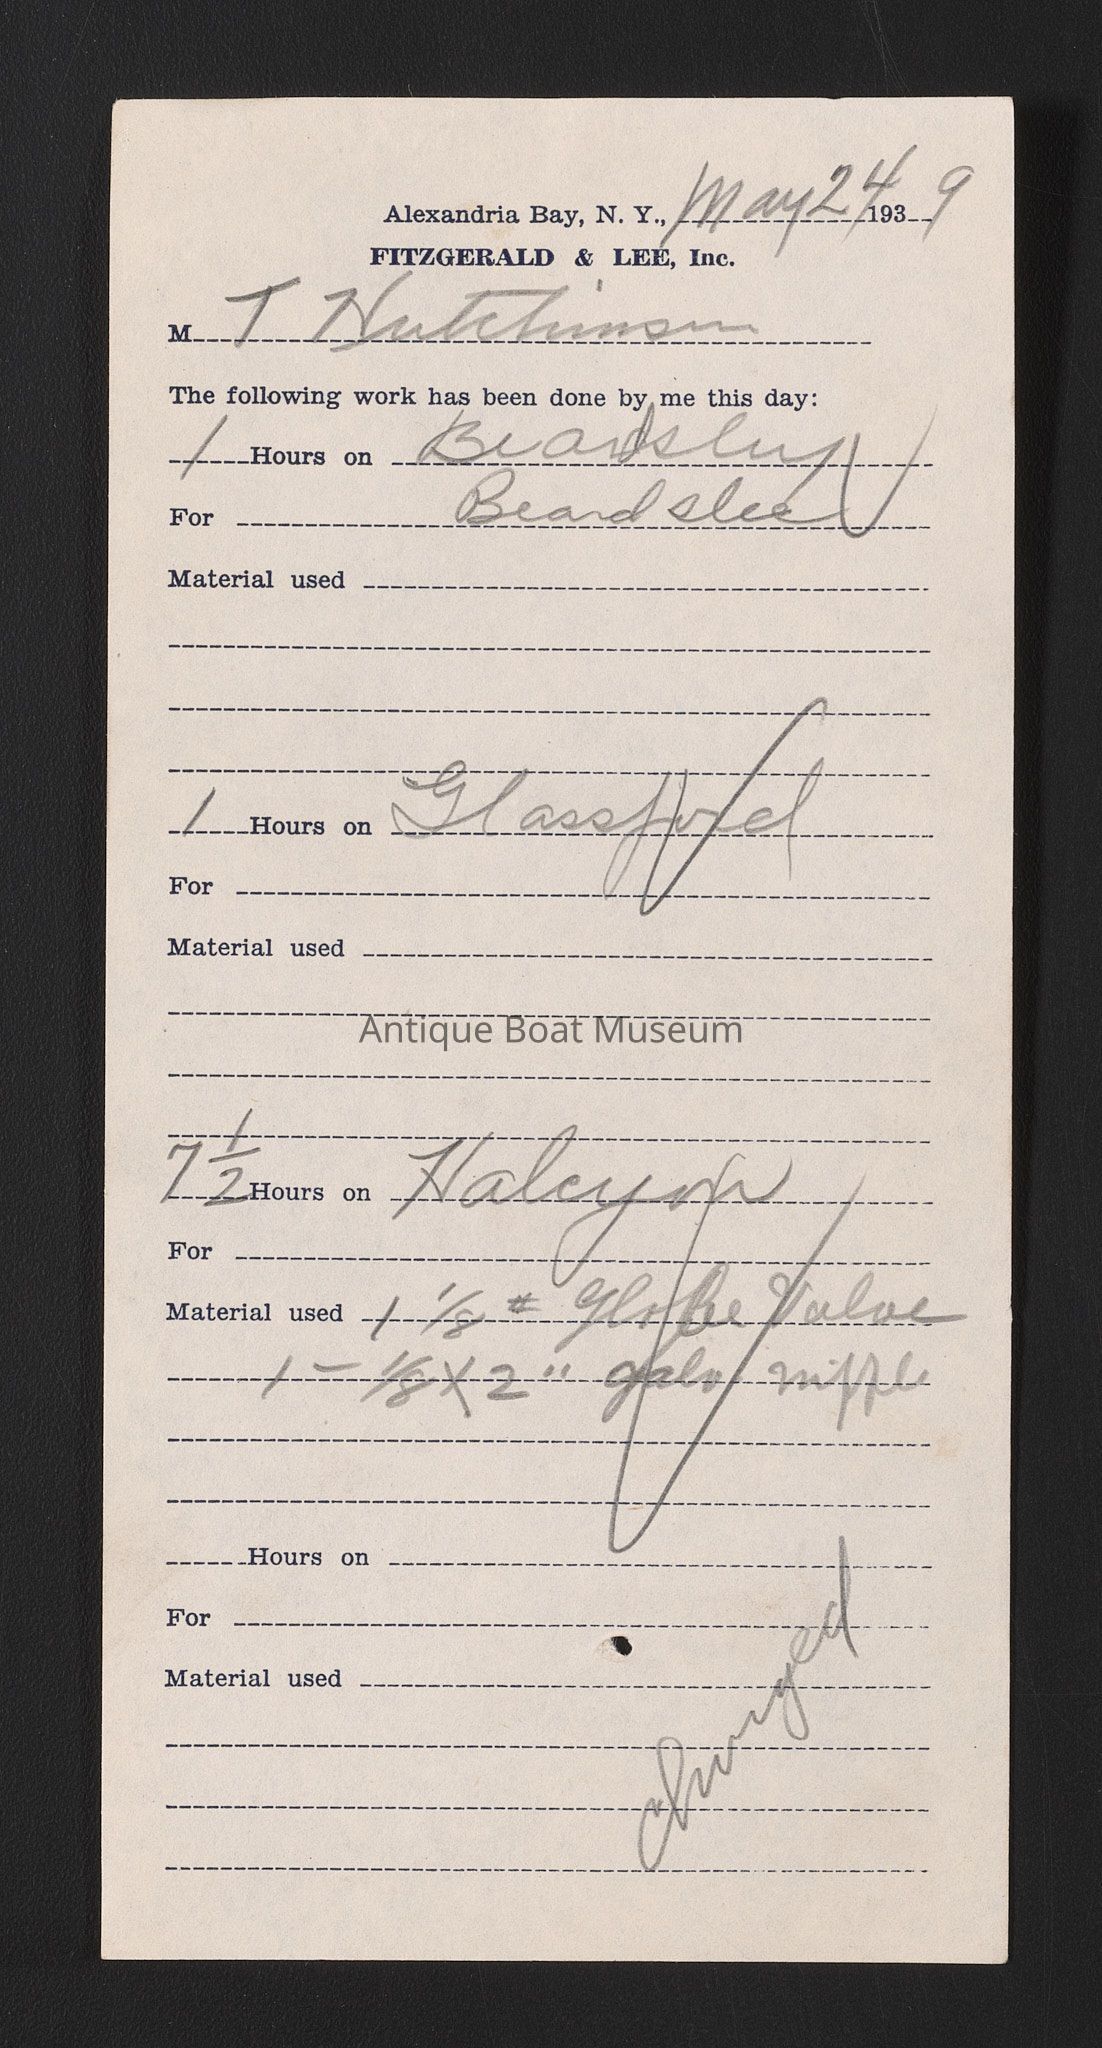 Alexandria Bay, N. Y., May 24 1939
FITZGERALD & LEE, Inc.
M T Hutchinson
The following work has been done by me this day:
1 Hours on Beardsley
For Beardslee
Material used
1 Hours on Glassford
For
Material used
Antique Boat Museum
7 1/2 Hours on Halcyon
For
Material used 1 1/8" Globe Valve
1 - 1/8 X 2" galv nipple
Hours on
For
Material used
Charged